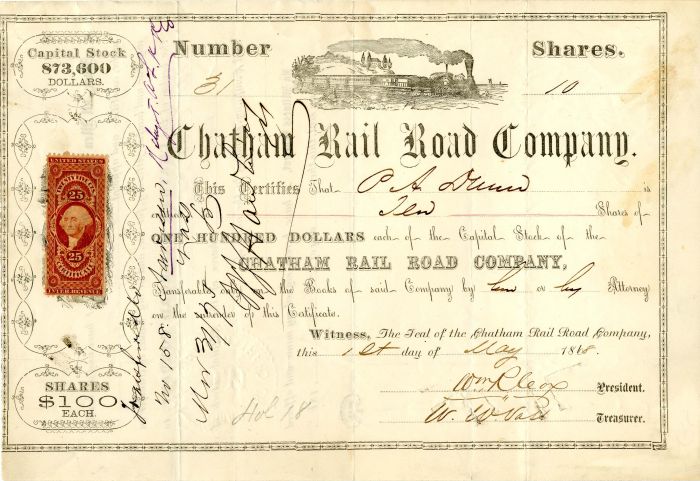 Capital Stock
$73,600
DOLLARS.
Number
31
Shares.
10
Chatham Rail Road Company.
This Certifies That P A Dunn is
entitled to Ten Shares of
ONE HUNDRED DOLLARS each of the Capital Stock of the
CHATHAM RAIL ROAD COMPANY,
Transferable only on the Books of said Company by him or his Attorney
on the surrender of this Certificate.
Witness, The Seal of the Chatham Rail Road Company,
this 1st day of May 1868.
Wm R Cox President.
W. W. Vass Treasurer.
UNITED STATES
25
25
CERTIFICATE
INTER. REV.
SHARES
$100
EACH.
No 158